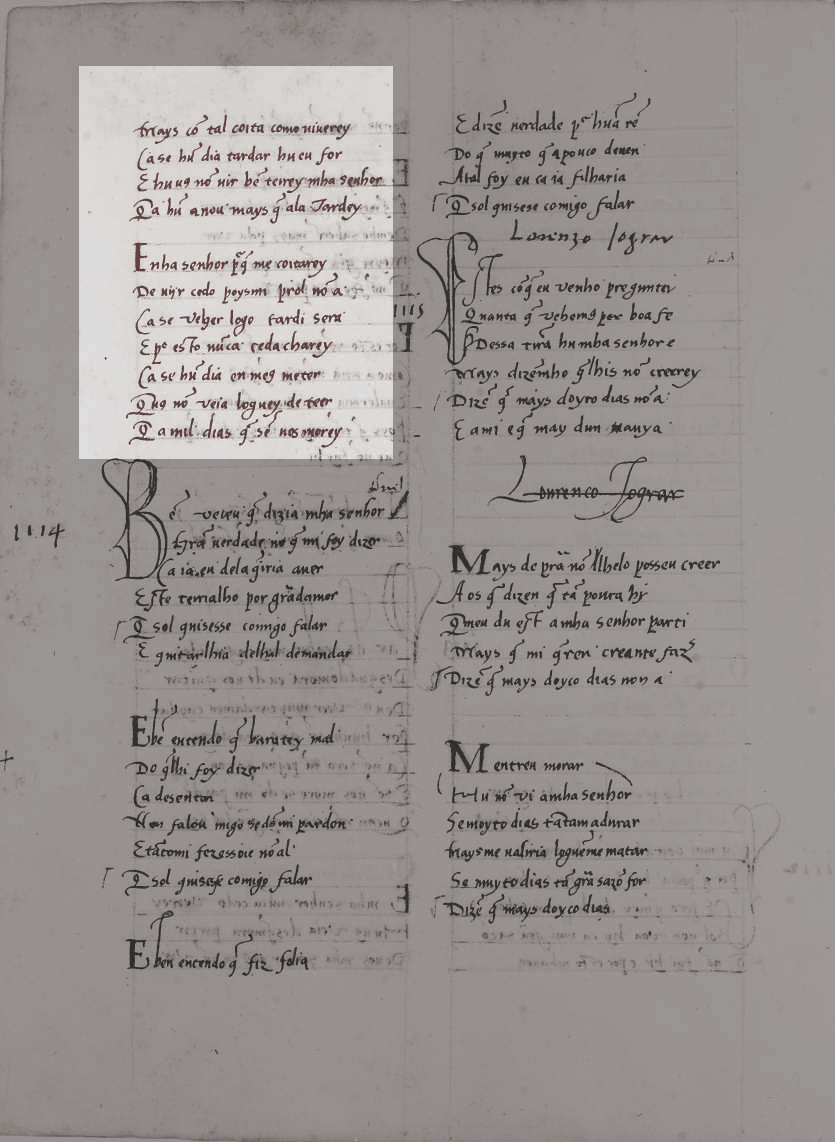 Mays cõ tal coita como viuerey
Ca se hũ dia tardar hu eu for
E hu uꝯ nõ uir bẽ terrey mha senhor
Q̃ a hũ anou mays q̃ ala Tardey
Enha senhor pʳq̃ me coitarey
De uijr cedo poys mi prol nõ a
Ca se veher logo tardi sera
E pʳ esto nũca ceda charey
Ca se hũ dia en meꝯ meter
Q̃ uꝯ nõ veia loguey de teer
Q̃ a mil dias q̃ sẽ uos morey
1114
Bẽ veieu q̃ dizia mha senhor
Grã uerdade no q̃ mi foy dizer
Ca ia eu dela q̃rria auer
Este temalho por grãdamor
Q̃ sol quisesse comigo falar
E quitarlhia delhal demandar
Ebẽ entendo q̃ baratey mal
Do q̃lhi foy dizer
Ca desenton
Non falou migo sedõmi pardon
Etãtomi fezessoie nõ al
Q̃ sol quisesse comigo falar
Eben entendo q̃ fiz folia
E dizẽ uerdade pʳ hũa rẽ
Do q̃ muyto q̃r apouco deuen
Atal foy eu ca ia filharia
Q̃ sol quisese comigo falar
Lorenzo Jograr
1115
Estes cõ q̃ eu venho preguntei
Quanta q̃ vehemꝯ per boa fe
Dessa tirã hu mha senhor e
Mays dizẽmho q̃lhis nõ creerey
Dizẽ q̃ mays doyto dias nõ a
E a mi eq̃ may dun anya
Lourenco Jograr
Mays de prã nõ lhelo posseu creer
Aos q̃ dizen q̃ tã pouca hy
Q̃meu du est a mha senhor parti
Mays q̃ mi q̃ren creante fazˢ
Dizẽ q̃ mays doyco dias non a
Mentreu morar
Hu nõ vi a mha senhor
Se moyto dias tãtam adurar
Mays me ualiria loguẽme matar
Se muyto dias tã grã sazõ for
Dizẽ q̃ mays doyco dias